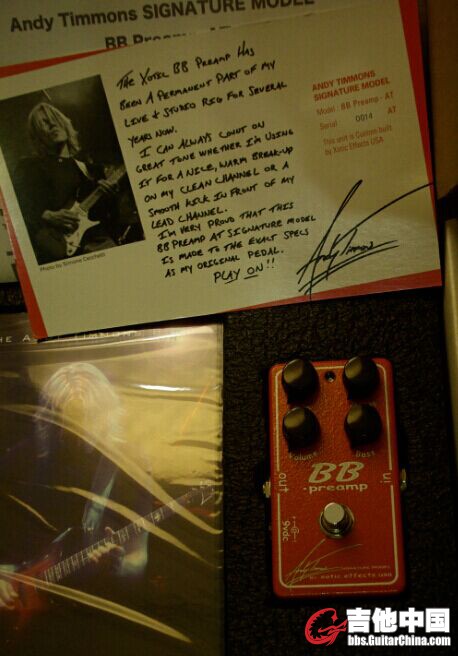 Andy Timmons SIGNATURE MODEL
BB Preamp AT
THE XOTIC BB PREAMP HAS
BEEN A PERMANENT PART OF MY
LIVE & STUDIO RIG FOR SEVERAL
YEARS NOW.
I CAN ALWAYS COUNT ON
GREAT TONE WHETHER I'M USING
IT FOR A NICE, WARM BREAK-UP
ON MY CLEAN CHANNEL OR A
SMOOTH KICK IN FRONT OF MY
LEAD CHANNEL.
I'M VERY PROUD THAT THIS
BB PREAMP AT SIGNATURE MODEL
IS MADE TO THE EXACT SPECS
AS MY ORIGINAL PEDAL.
PLAY ON!!
ANDY TIMMONS
SIGNATURE MODEL
Model: BB Preamp - AT
Serial: 0014 AT
This unit is Custom built
by Xotic Effects USA
Andy Timmons
Photo by Simone Cecchetti
Volume
Bass
out
in
BB
preamp
9vdc
SIGNATURE MODEL
xotic effects usa
吉他中国
bbs.GuitarChina.com